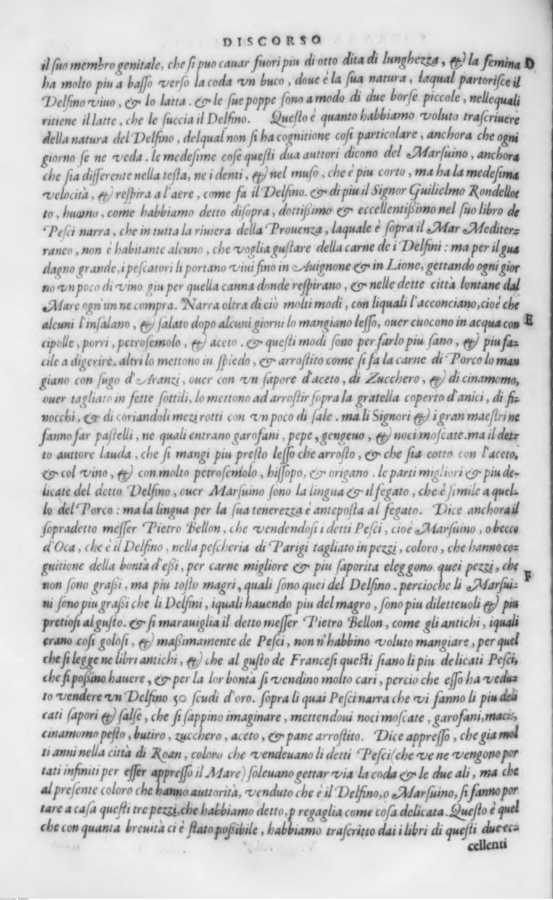 DISCORSO
il suo membro genitale, che si puo cauar fuori piu di otto dita di lunghezza, & la femina D
ha molto piu a basso verso la coda vn buco, doue è la sua natura, laqual partorisce il
Delfino viuo, & lo latta. & le sue poppe sono a modo di due borse piccole, nellequali
ritiene il latte, che le succia il Delfino. Questo è quanto habbiamo voluto trascriuere
della natura del Delfino, delqual non si ha cognitione cosi particolare, anchora che ogni
giorno se ne veda. le medesime cose questi dua auttori dicono del Marsuino, anchora
che sia differente nella testa, ne i denti, & nel muso, che è piu corto, ma ha la medesima
velocità, & respira a l'aere, come fa il Delfino. & di piu il Signor Guilielmo Rondellot
to, huomo, come habbiamo detto disopra, dottissimo & eccellentissimo nel suo libro de
Pesci narra, che in tutta la riuiera della Prouenza, laquale è sopra il Mar Mediter-
raneo, non è habitante alcuno, che voglia gustare della carne de i Delfini: ma per il gua
dagno grande, i pescatori li portano viui fino in Auignone & in Lione, gettando ogni gior
no vn poco di vino giu per quella canna donde respirano, & nelle dette città lontane dal
Mare ogn'un ne compra. Narra oltra di ciò molti modi, con liquali l'acconciano, cioè che
alcuni l'insalano, & salato dopo alcuni giorni lo mangiano lesso, ouer cuocono in acqua con E
cipolle, porri, petrosemolo, & aceto. & questi modi sono per farlo piu sano, & piu fa-
cile a digerire. altri lo mettono in spiedo, & arrostito come si fa la carne di Porco lo man
giano con sugo d'Aranzi, ouer con vn sapore d'aceto, di Zucchero, & di cinamomo,
ouer tagliato in fette sottili, lo mettono ad arrostir sopra la gratella coperto d'anici, di fi-
nocchi, & di coriandoli mezi rotti con vn poco di sale. ma li Signori & i gran maestri ne
fanno far pastelli, ne quali entrano garofani, pepe, gengeuo, & noci moscate. ma il det-
to auttore lauda, che si mangi piu presto lesso che arrosto, & che sia cotto con l'aceto,
& col vino, & con molto petrosemolo, hissopo, & origano. le parti migliori & piu de-
licate del detto Delfino, ouer Marsuino sono la lingua & il fegato, che è simile a quel-
lo del Porco: ma la lingua per la sua tenerezza è anteposta al fegato. Dice anchora il
sopradetto messer Pietro Bellon, che vendendosi i detti Pesci, cioè Marsuino, o becco
d'Oca, che è il Delfino, nella pescheria di Parigi tagliato in pezzi, coloro, che hanno co-
gnitione della bontà d'essi, per carne migliore & piu saporita eleggono quei pezzi, che
non sono grassi, ma piu tosto magri, quali sono quei del Delfino. percioche li Marsui- F
ni sono piu grassi che li Delfini, iquali hauendo piu del magro, sono piu diletteuoli & piu
pretiosi al gusto. & si marauiglia il detto messer Pietro Bellon, come gli antichi, iquali
erano cosi golosi, & massimamente de Pesci, non n'habbino voluto mangiare, per quel
che si legge ne libri antichi, & che al gusto de Francesi questi siano li piu delicati Pesci,
che si possino hauere, & per la lor bontà si vendino molto cari, percio che esso ha vedu-
to vendere vn Delfino 50 scudi d'oro. sopra li quai Pesci narra che vi fanno li piu deli
cati sapori & salse, che si sappino imaginare, mettendoui noci moscate, garofani, macis,
cinamomo pesto, butiro, zucchero, aceto, & pane arrostito. Dice appresso, che gia mol
ti anni nella città di Roan, coloro che vendeuano li detti Pesci (che ve ne vengono por
tati infiniti per esser appresso il Mare) soleuano gettar via la coda & le due ali, ma che
al presente coloro che hanno auttorità, venduto che è il Delfino, o Marsuino, si fanno por
tare a casa questi tre pezzi, che habbiamo detto, p regaglia come cosa delicata. Questo è quel
che con quanta breuità ci è stato possibile, habbiamo trascritto dai i libri di questi due ec-
cellenti